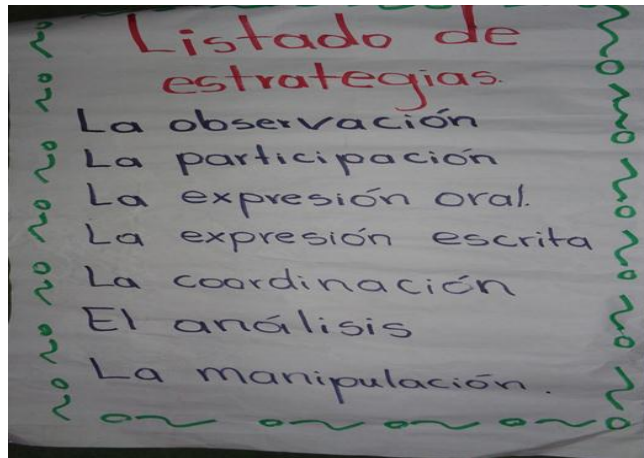 Listado de
estrategias.
La observación
La participación
La expresión oral.
La expresión escrita
La coordinación
El análisis
La manipulación.